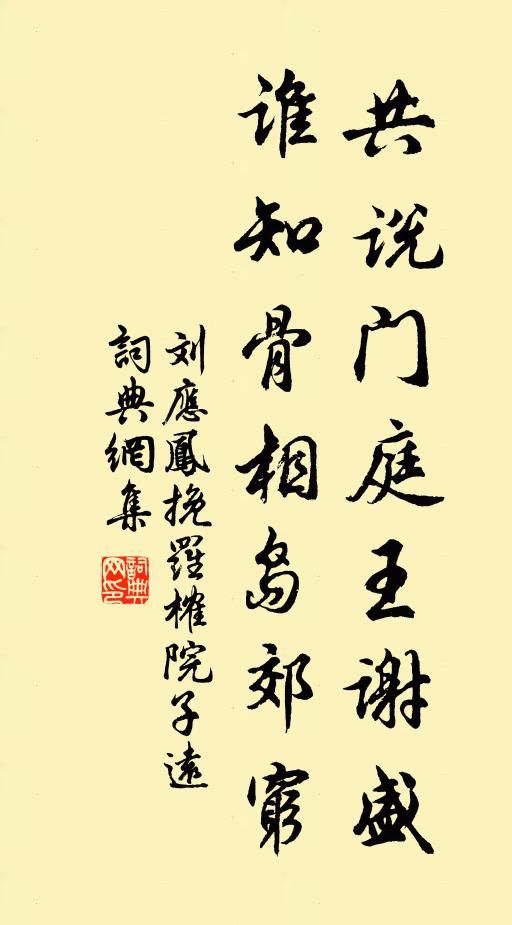 共说门庭王谢盛
谁知骨相岛郊穷
刘應鳳挽羅榷院子遠
詞典網集
詞典网印